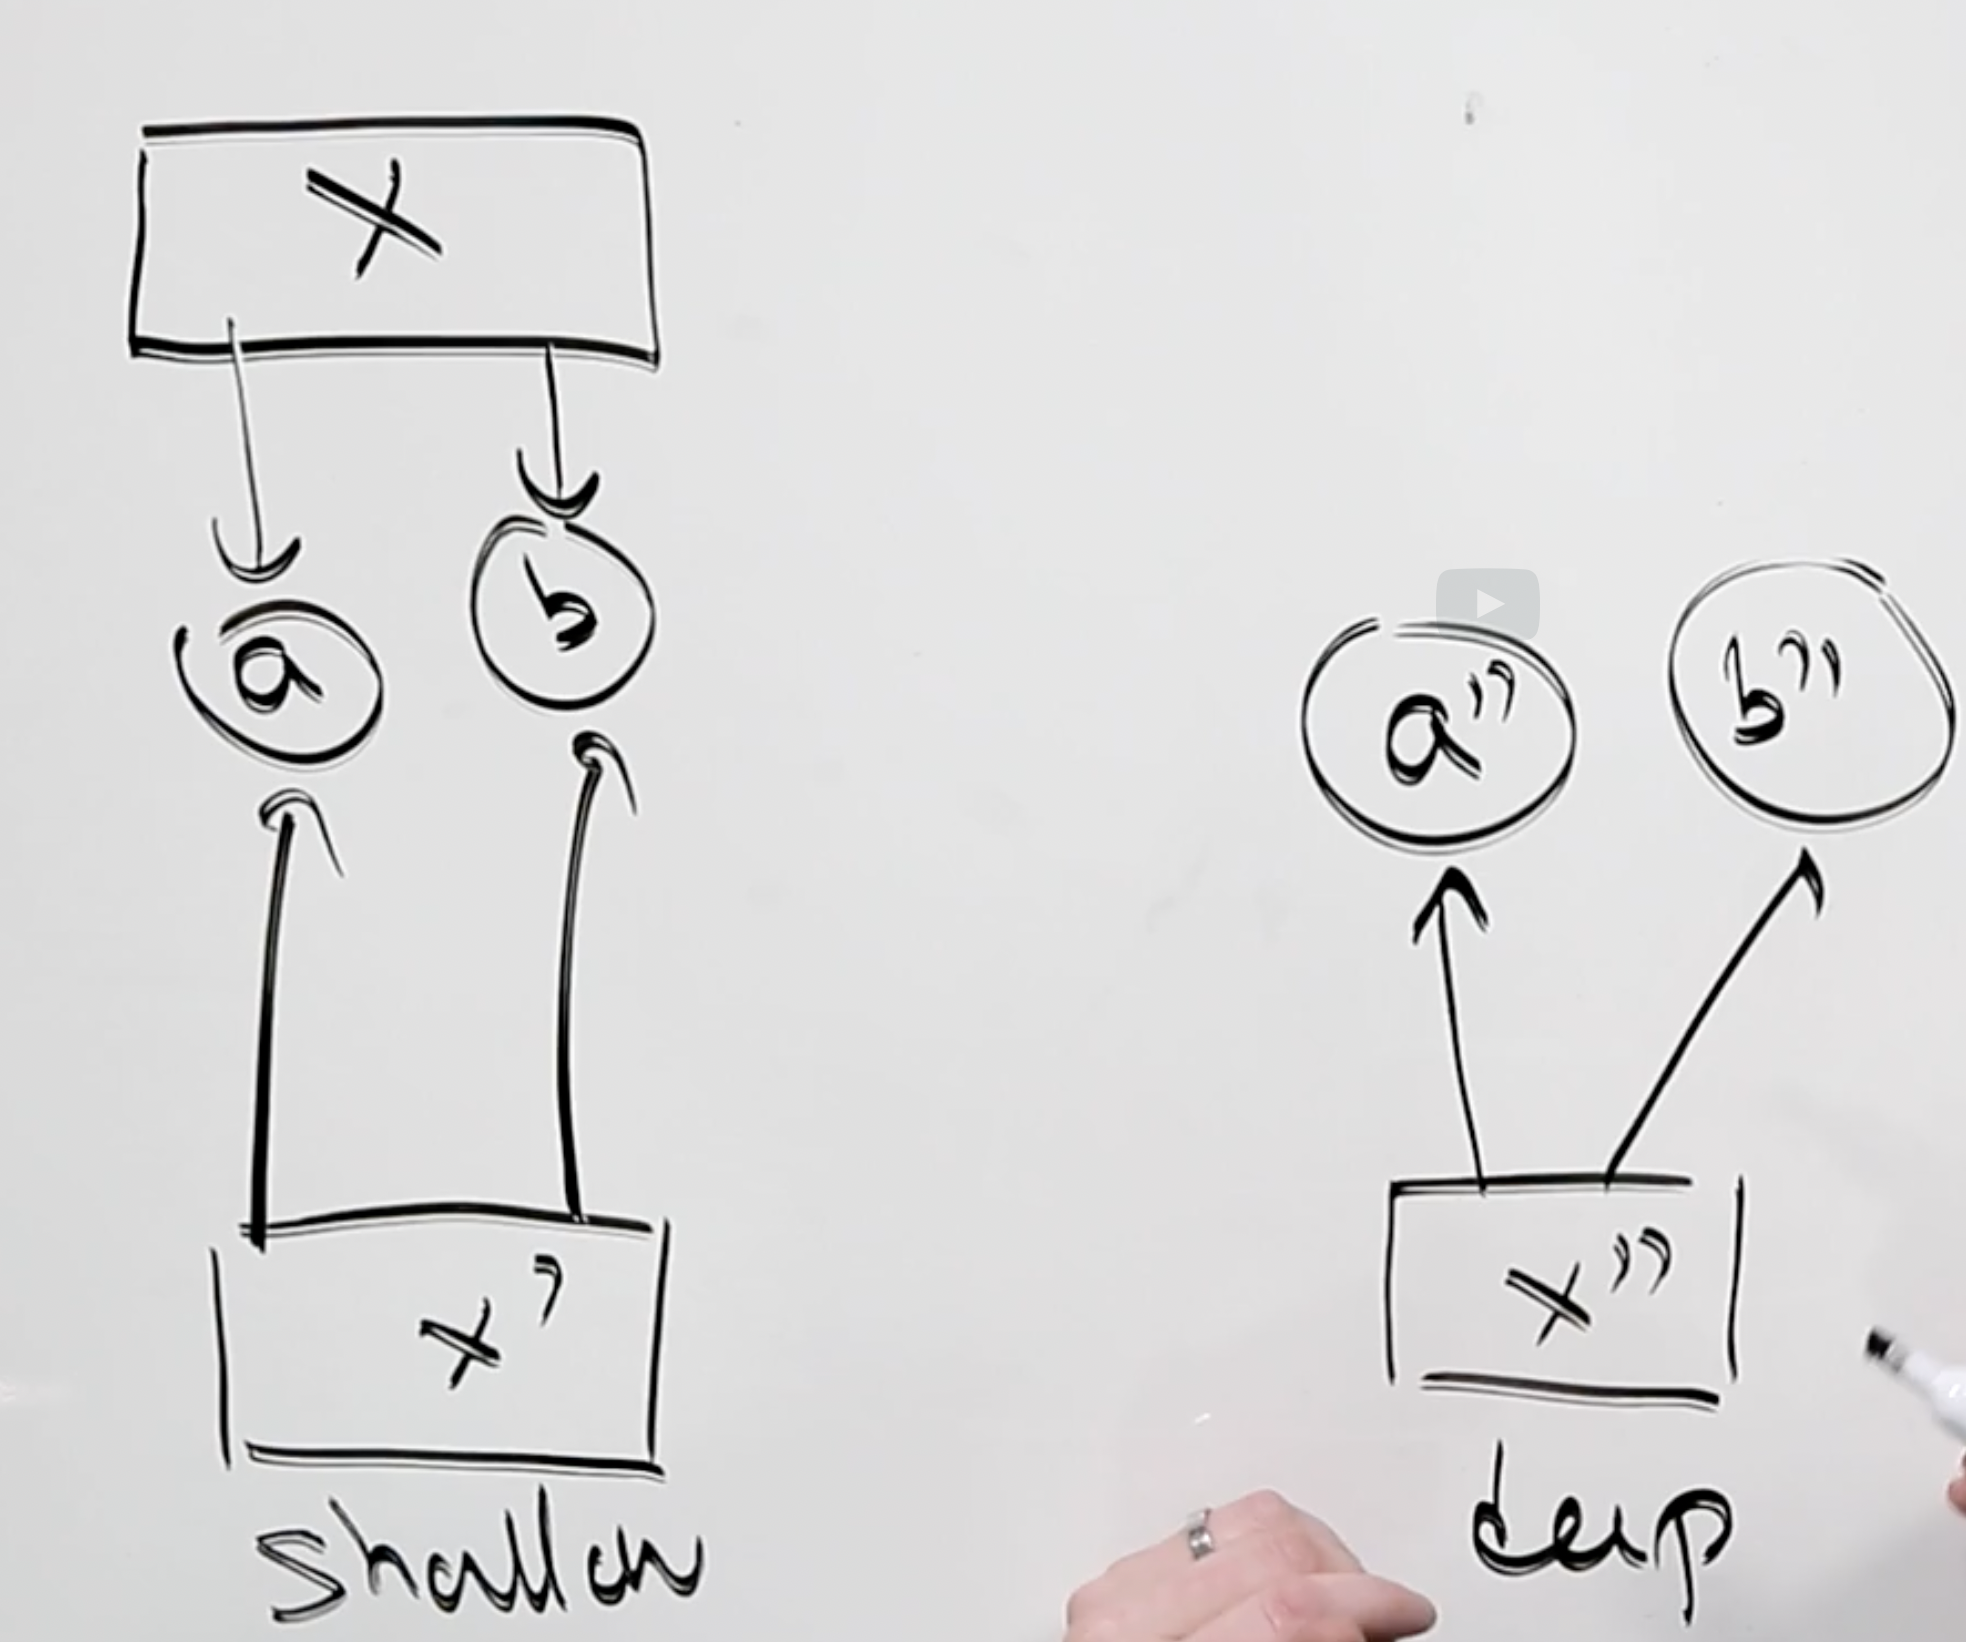 X
a
b
x'
shallow
a"
b"
x"
deep